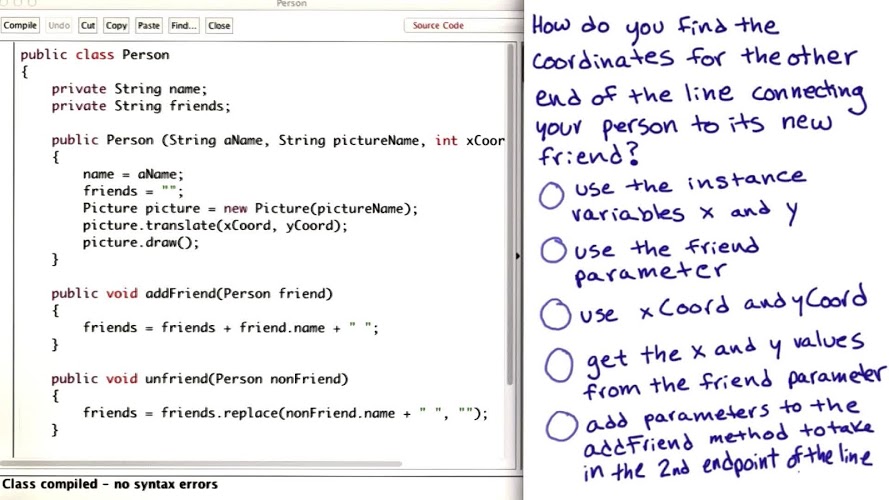 Person
Compile Undo Cut Copy Paste Find... Close Source Code
public class Person
{
private String name;
private String friends;
public Person (String aName, String pictureName, int xCoor
{
name = aName;
friends = "";
Picture picture = new Picture(pictureName);
picture.translate(xCoord, yCoord);
picture.draw();
}
public void addFriend(Person friend)
{
friends = friends + friend.name + " ";
}
public void unfriend(Person nonFriend)
{
friends = friends.replace(nonFriend.name + " ", "");
}
Class compiled - no syntax errors
How do you find the
coordinates for the other
end of the line connecting
your person to its new
friend?
use the instance
variables x and y
use the friend
parameter
use xCoord and yCoord
get the x and y values
from the friend parameter
add parameters to the
addFriend method to take
in the 2nd endpoint of the line